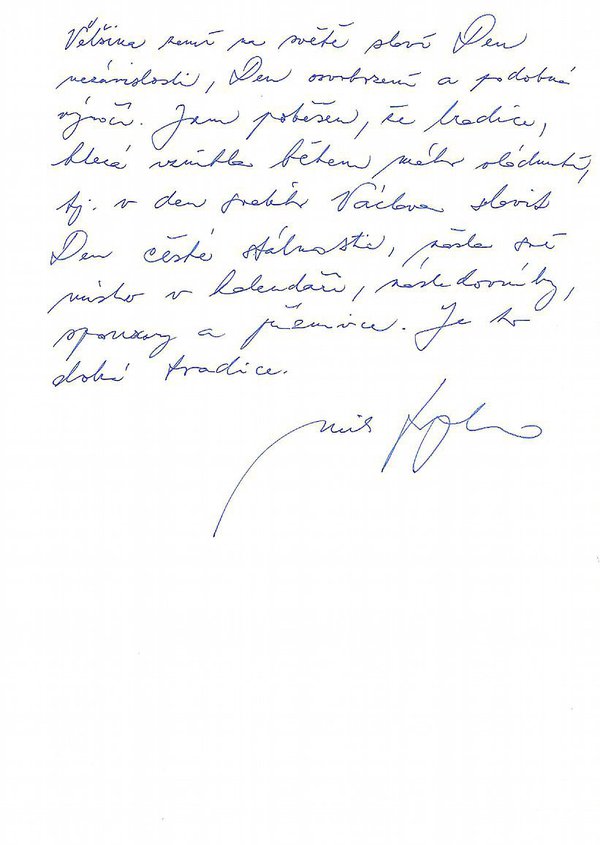 Většina zemí na světě slaví Den
nezávislosti, Den osvobození a podobná
výročí. Jsem potěšen, že tradice,
která vznikla během mého vládnutí,
tj. v den svatého Václava slavit
Den české státnosti, našla své
místo v kalendáři, následovníky,
sponzory a příznivce. Je to
dobrá tradice.